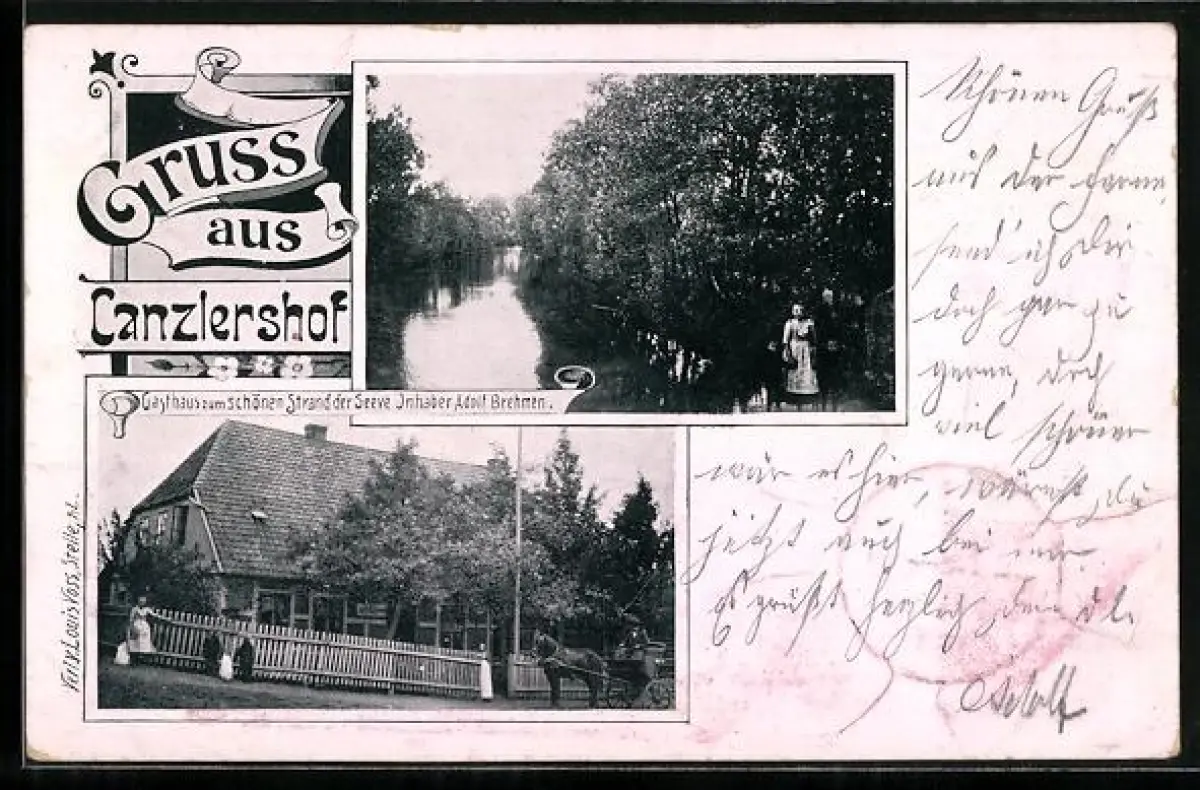 Gruss
aus
Canzlershof
Gasthaus zum schönen Strand der Seeve Inhaber Adolf Brehmen.
Verl. v. Louis Voss, Stelle,
Schönen Gruß
aus der Ferne,
send' ich Dir
doch gar zu
gerne, doch
viel schöner
wär es hier, wärest du
jetzt auch bei mir
Es grüßt herzlich dein
Adolf